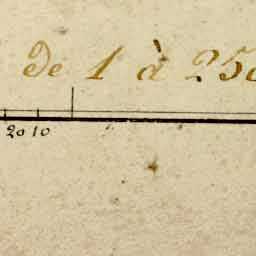 de 1 à 250
20 10